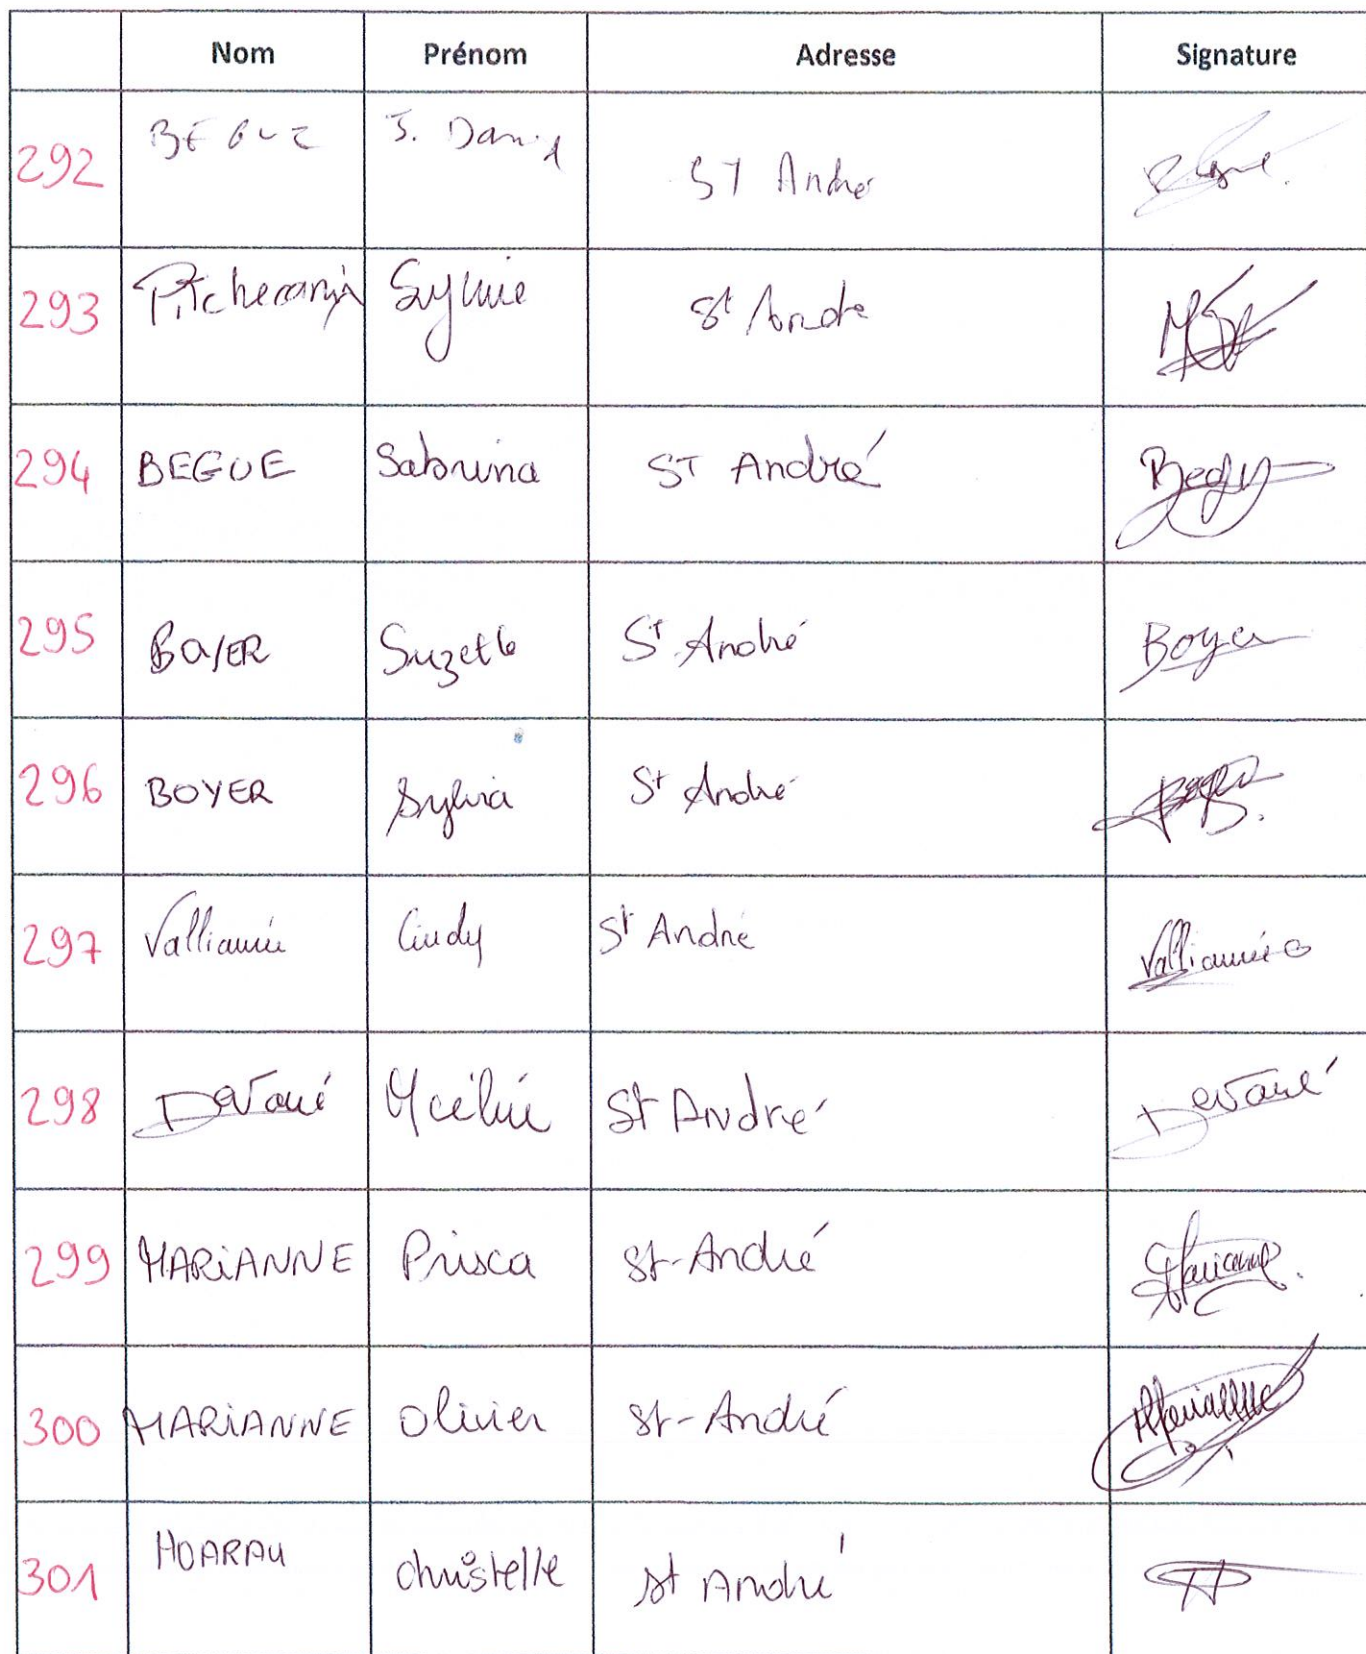 Nom Prénom Adresse Signature
292 BEGUE J. David ST André
293 Sylvie St André
294 BEGUE Sabrina ST André
295 BOYER Suzette St André Boyer
296 BOYER Sylvia St André
297 Valliamée Cindy St André Valliamée
298 Devoué St André
299 MARIANNE Prisca St-André
300 MARIANNE Olivier St-André
301 HOARAU Christelle St André